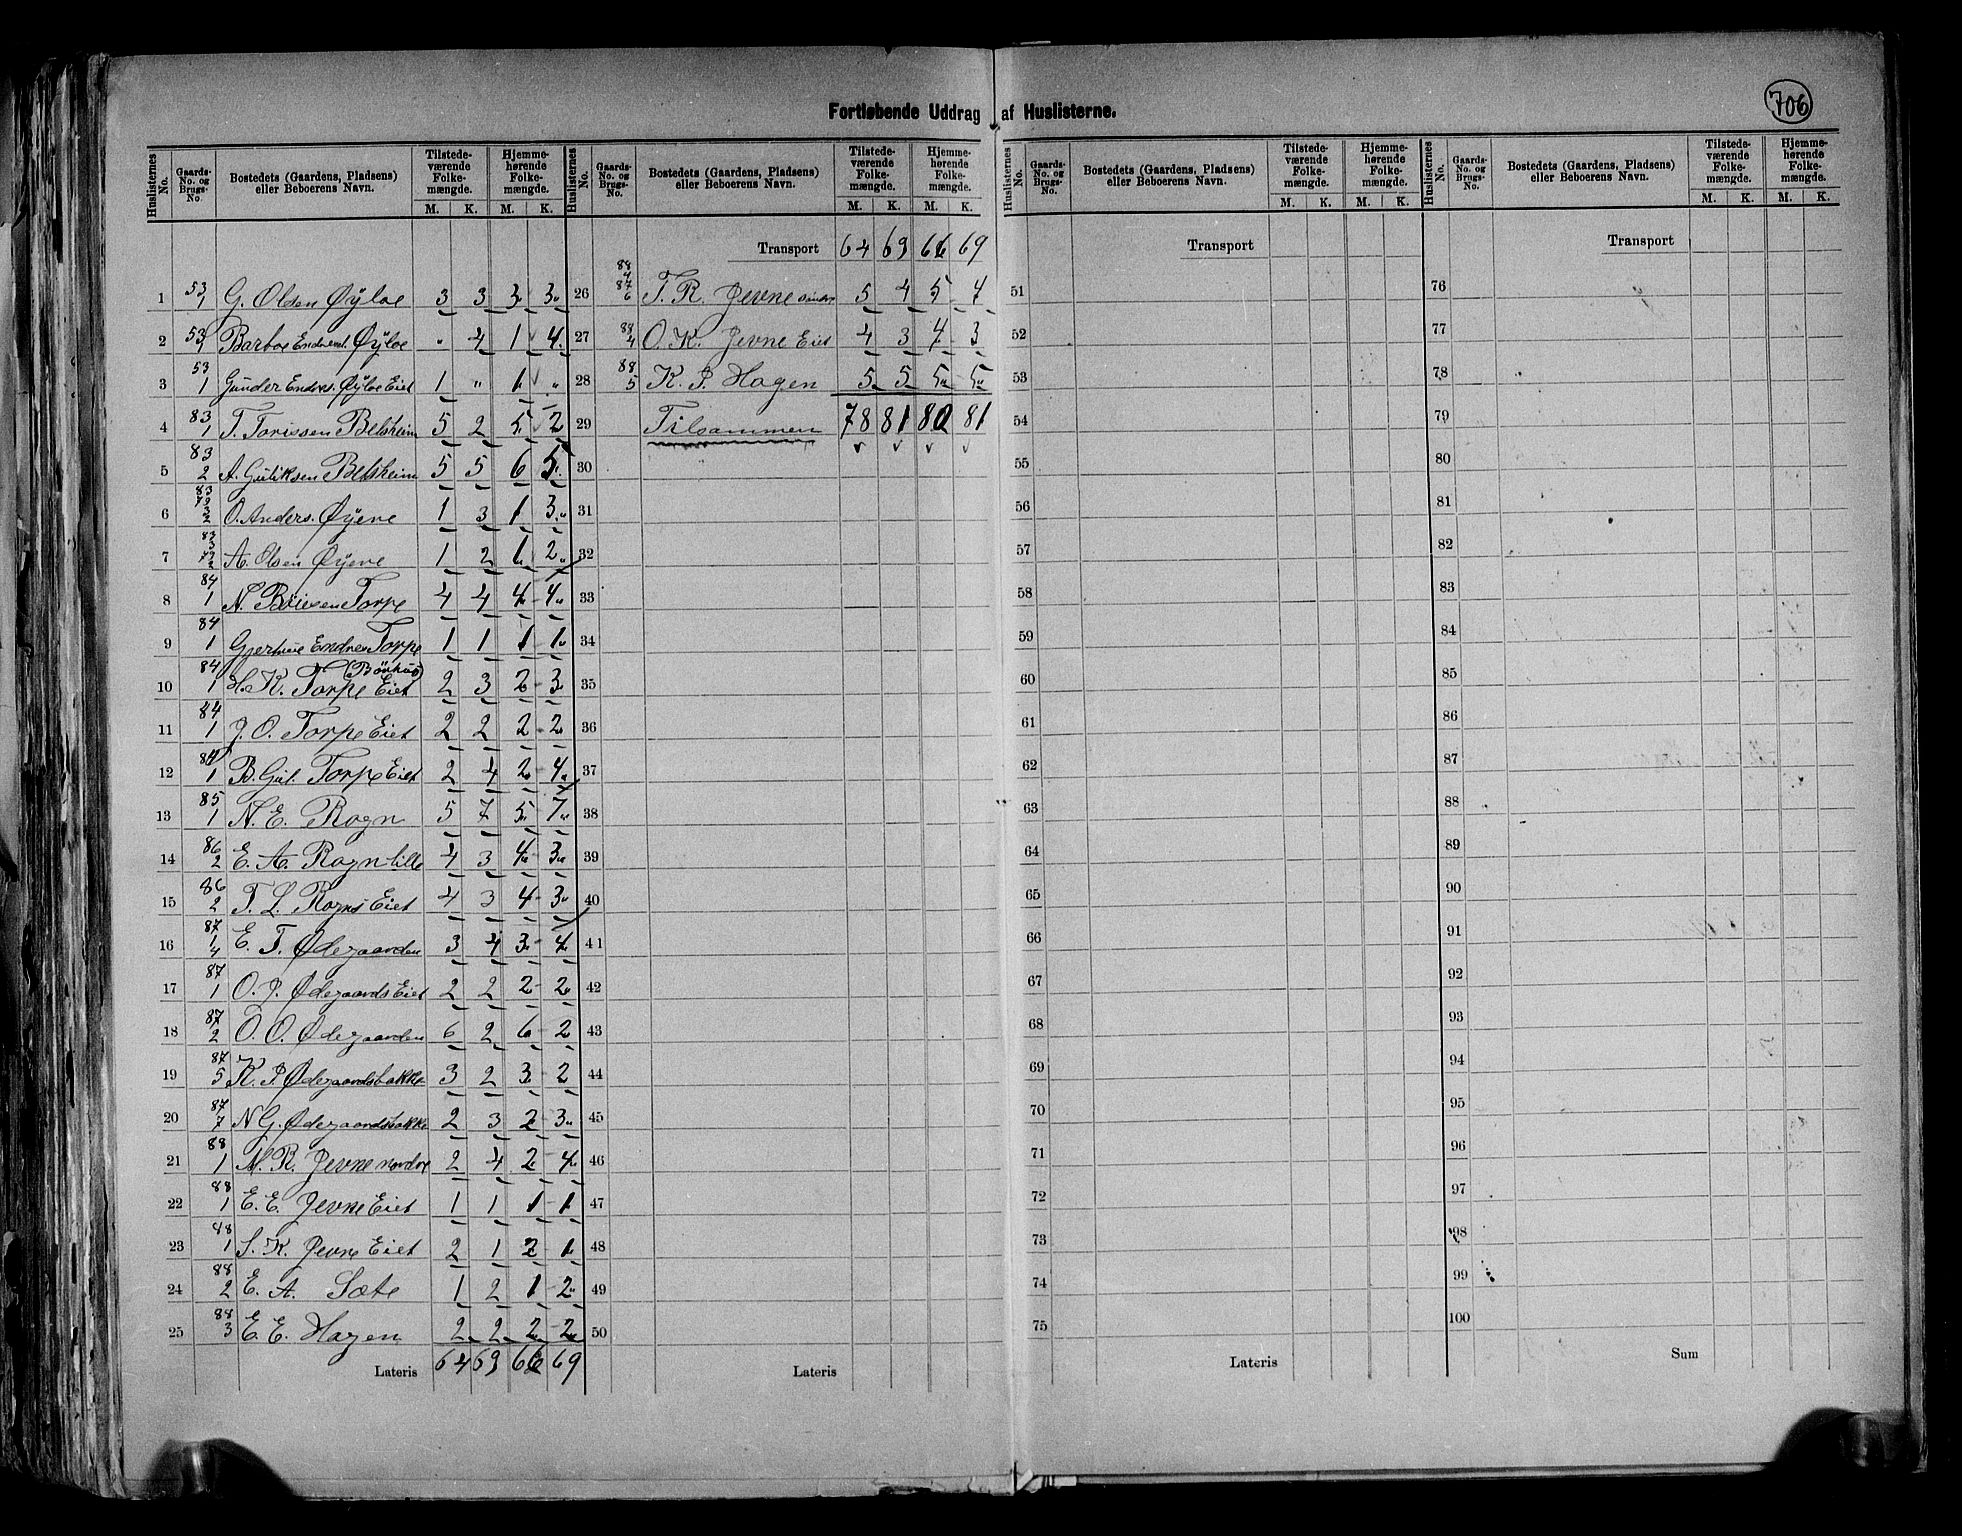 706
Fortløbende Uddrag af Huslisterne.
Huslisternes No. | Gaards-No. og Brugs-No | Bostedets (Gaardens, Pladsens) eller Beboerens Navn. | Tilstedeværende Folkemængde. M. K. | Hjemmehørende Folkemængde. M. K.
1 53/1 G. Olsen Øyloe 3 3 3 3
2 53/1 Barboe Endresd. Øyloe " 4 1 4
3 53/1 Gunder Endres. Øyloe Eiet 1 " 1 "
4 83/1 T. Torissen Belsheim 5 2 5 2
5 83/2 A. Guliksen Belsheim 5 5 6 5
6 83/2 O. Anders. Øyene 1 3 1 3
7 83/3 A. Olsen Øyene 1 2 1 2
8 84/1 N. Böiesen Torpe 4 4 4 4
9 84/1 Gjertrue Endres Torpe 1 1 1 1
10 84/1 H. K. Torpe Eiet (Bönhus) 2 3 2 3
11 84/1 J. O. Torpe Eiet 2 2 2 2
12 84/1 B. Gul. Torpe Eiet 2 4 2 4
13 85/1 N. E. Rogn 5 7 5 7
14 86/2 E. A. Rogn lille 4 3 4 3
15 86/2 T. L. Rogns Eiet 4 3 4 3
16 87/1 4 E. T. Ødegaarden 3 4 3 4
17 87/1 O. J. Ødegaards Eiet 2 2 2 2
18 87/2 O. O. Ødegaarden 6 2 6 2
19 87/5 K. P. Ødegaardsbakke 3 2 3 2
20 87/7 N G. Ødegaardsbakke 2 3 2 3
21 88/1 N. R. Jevne nordre 2 4 2 4
22 88/1 E. E. Jevne Eiet 1 1 1 1
23 88/1 S. K. Jevne Eiet 2 1 2 1
24 88/2 E. A. Sæte 1 2 1 2
25 88/3 E. E. Hagen 2 2 2 2
Lateris 64 69 66 69
Huslisternes No. | Gaards-No. og Brugs-No. | Bostedets (Gaardens, Pladsens) eller Beboerens Navn. | Tilstedeværende Folkemængde. M. K. | Hjemmehørende Folkemængde. M. K.
Transport 64 69 66 69
26 88/4 87/6 T. R. Jevne 5 4 5 4
27 88/4 O. K. Jevne Eiet 4 3 4 3
28 88/5 K. P. Hagen 5 5 5 5
29 Tilsammen 78 81 80 81
30
31
32
33
34
35
36
37
38
39
40
41
42
43
44
45
46
47
48
49
50
Lateris
Huslisternes No. | Gaards-No. og Brugs-No. | Bostedets (Gaardens, Pladsens) eller Beboerens Navn. | Tilstedeværende Folkemængde. M. K. | Hjemmehørende Folkemængde. M. K.
Transport
51
52
53
54
55
56
57
58
59
60
61
62
63
64
65
66
67
68
69
70
71
72
73
74
75
Lateris
Huslisternes No. | Gaards-No. og Brugs-No. | Bostedets (Gaardens, Pladsens) eller Beboerens Navn. | Tilstedeværende Folkemængde. M. K. | Hjemmehørende Folkemængde. M. K.
Transport
76
77
78
79
80
81
82
83
84
85
86
87
88
89
90
91
92
93
94
95
96
97
98
99
100
Sum